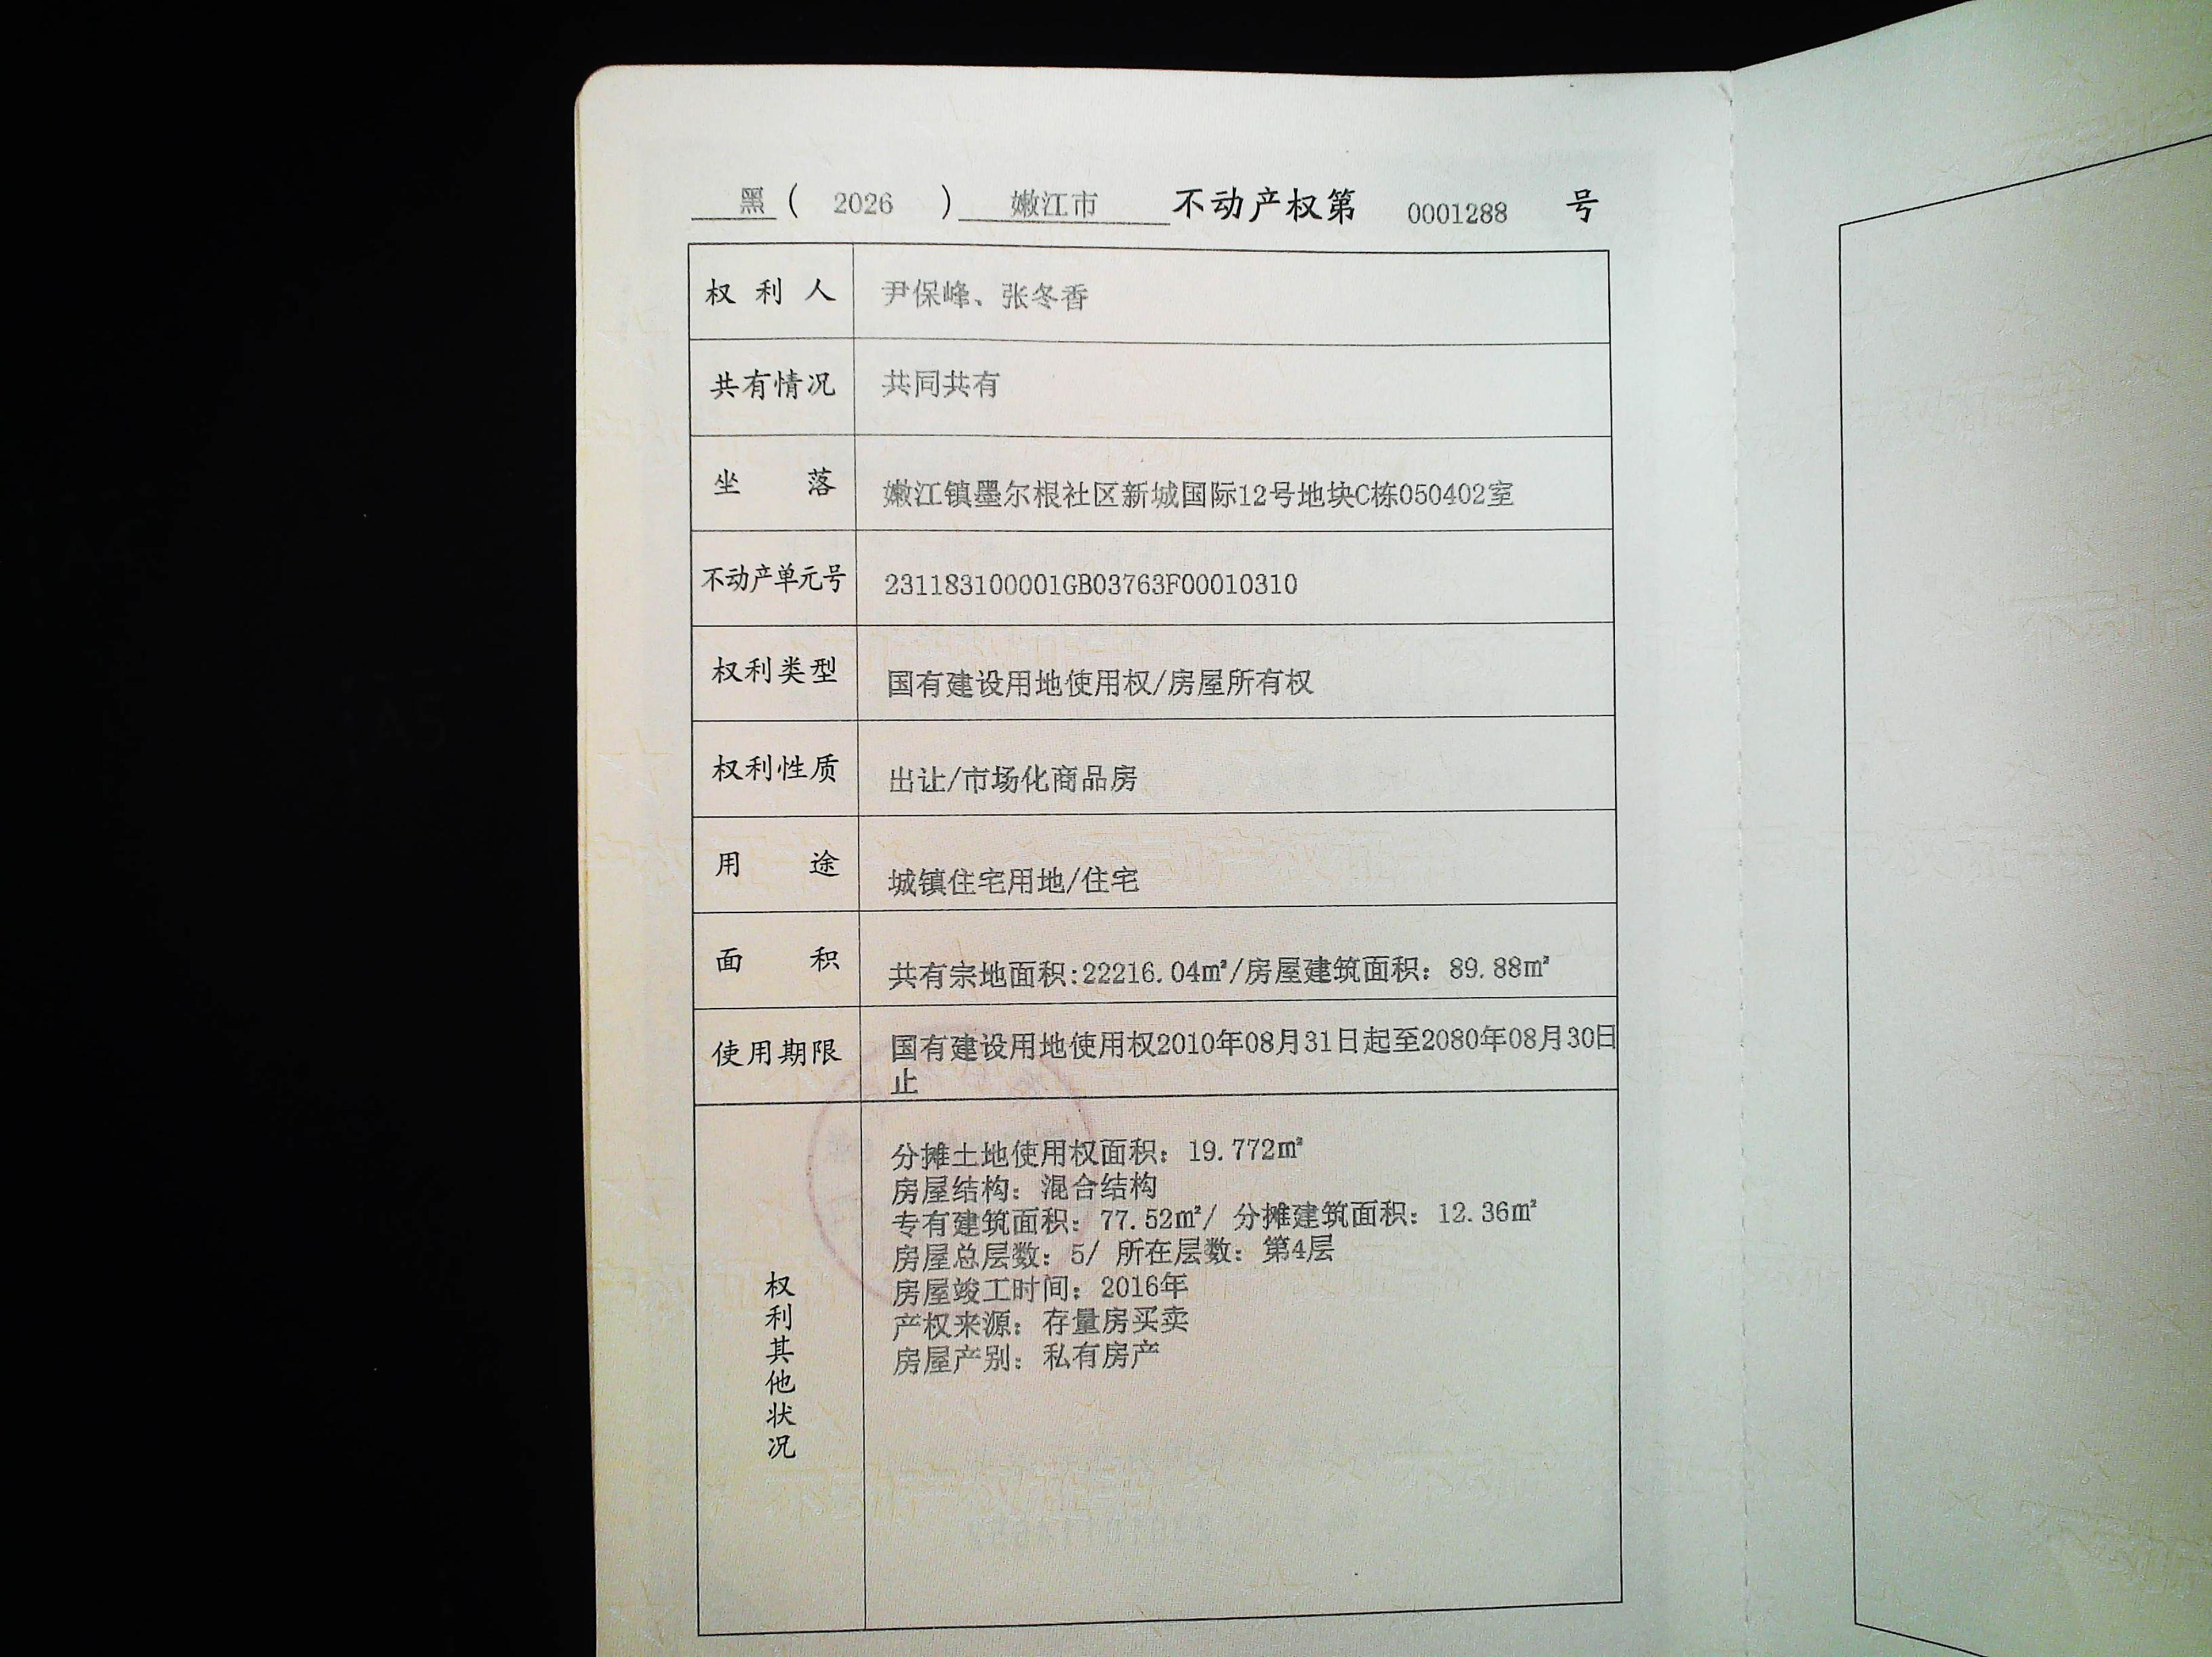 黑（ 2026 ） 嫩江市 不动产权第 0001288 号
权利人 尹保峰、张冬香
共有情况 共同共有
坐落 嫩江镇墨尔根社区新城国际12号地块C栋050402室
不动产单元号 231183100001GB03763F00010310
权利类型 国有建设用地使用权/房屋所有权
权利性质 出让/市场化商品房
用途 城镇住宅用地/住宅
面积 共有宗地面积:22216.04㎡/房屋建筑面积：89.88㎡
使用期限 国有建设用地使用权2010年08月31日起至2080年08月30日
止
权利其他状况
分摊土地使用权面积：19.772㎡
房屋结构：混合结构
专有建筑面积：77.52㎡/ 分摊建筑面积：12.36㎡
房屋总层数：5/ 所在层数：第4层
房屋竣工时间：2016年
产权来源：存量房买卖
房屋产别：私有房产